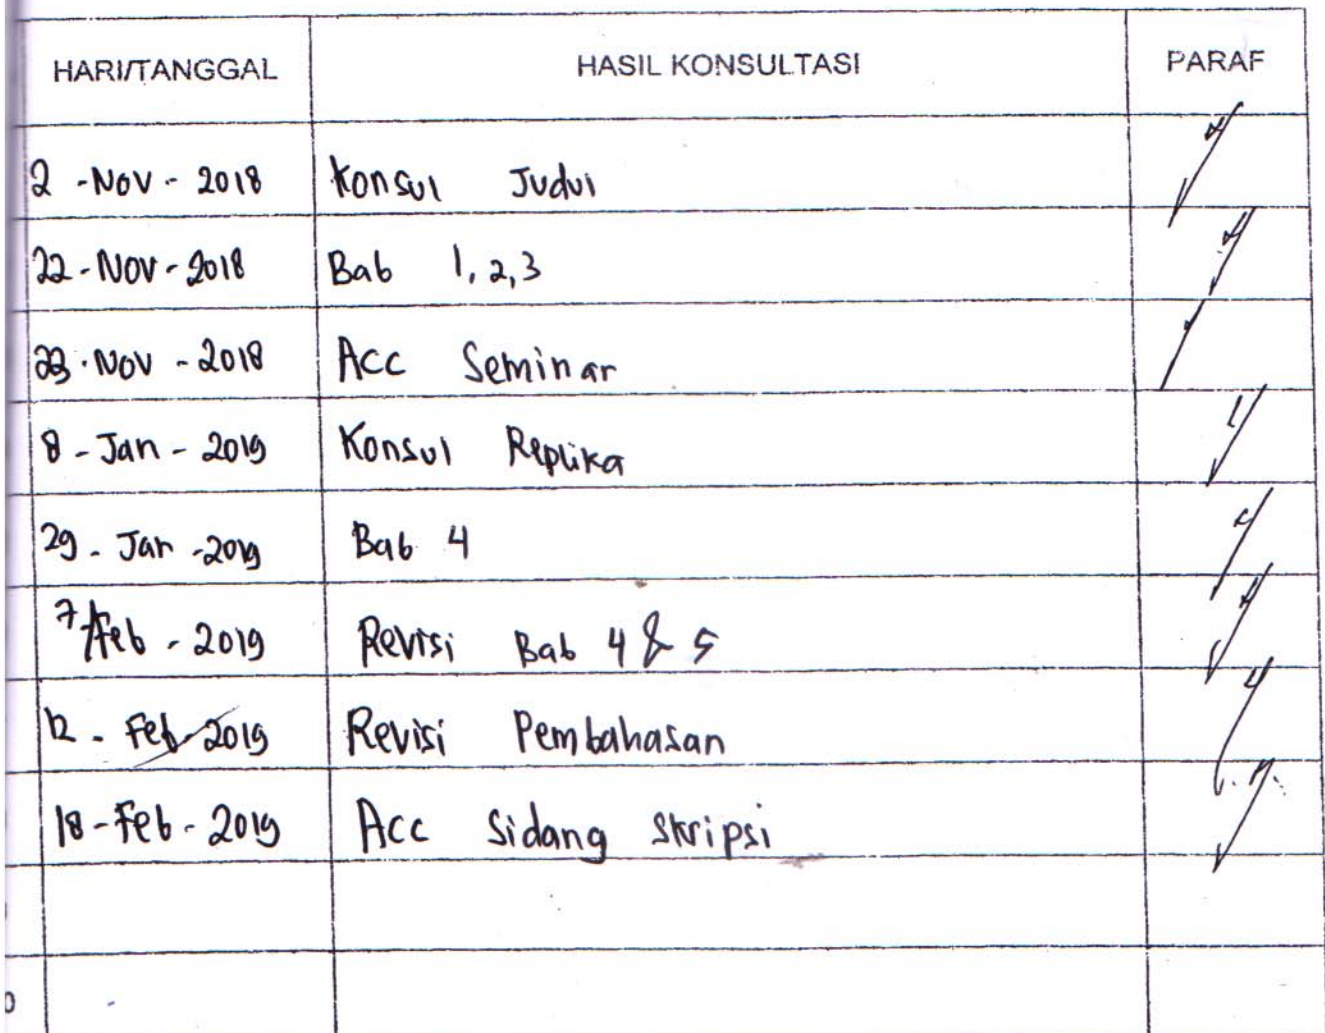 HARI/TANGGAL HASIL KONSULTASI PARAF
2 - Nov - 2018 Konsul Judul
22 - Nov - 2018 Bab 1, 2, 3
23 - Nov - 2018 Acc Seminar
8 - Jan - 2019 Konsul Replika
29 - Jan - 2019 Bab 4
7 Feb - 2019 Revisi Bab 4 & 5
12 - Feb - 2019 Revisi Pembahasan
18 - Feb - 2019 Acc Sidang Skripsi